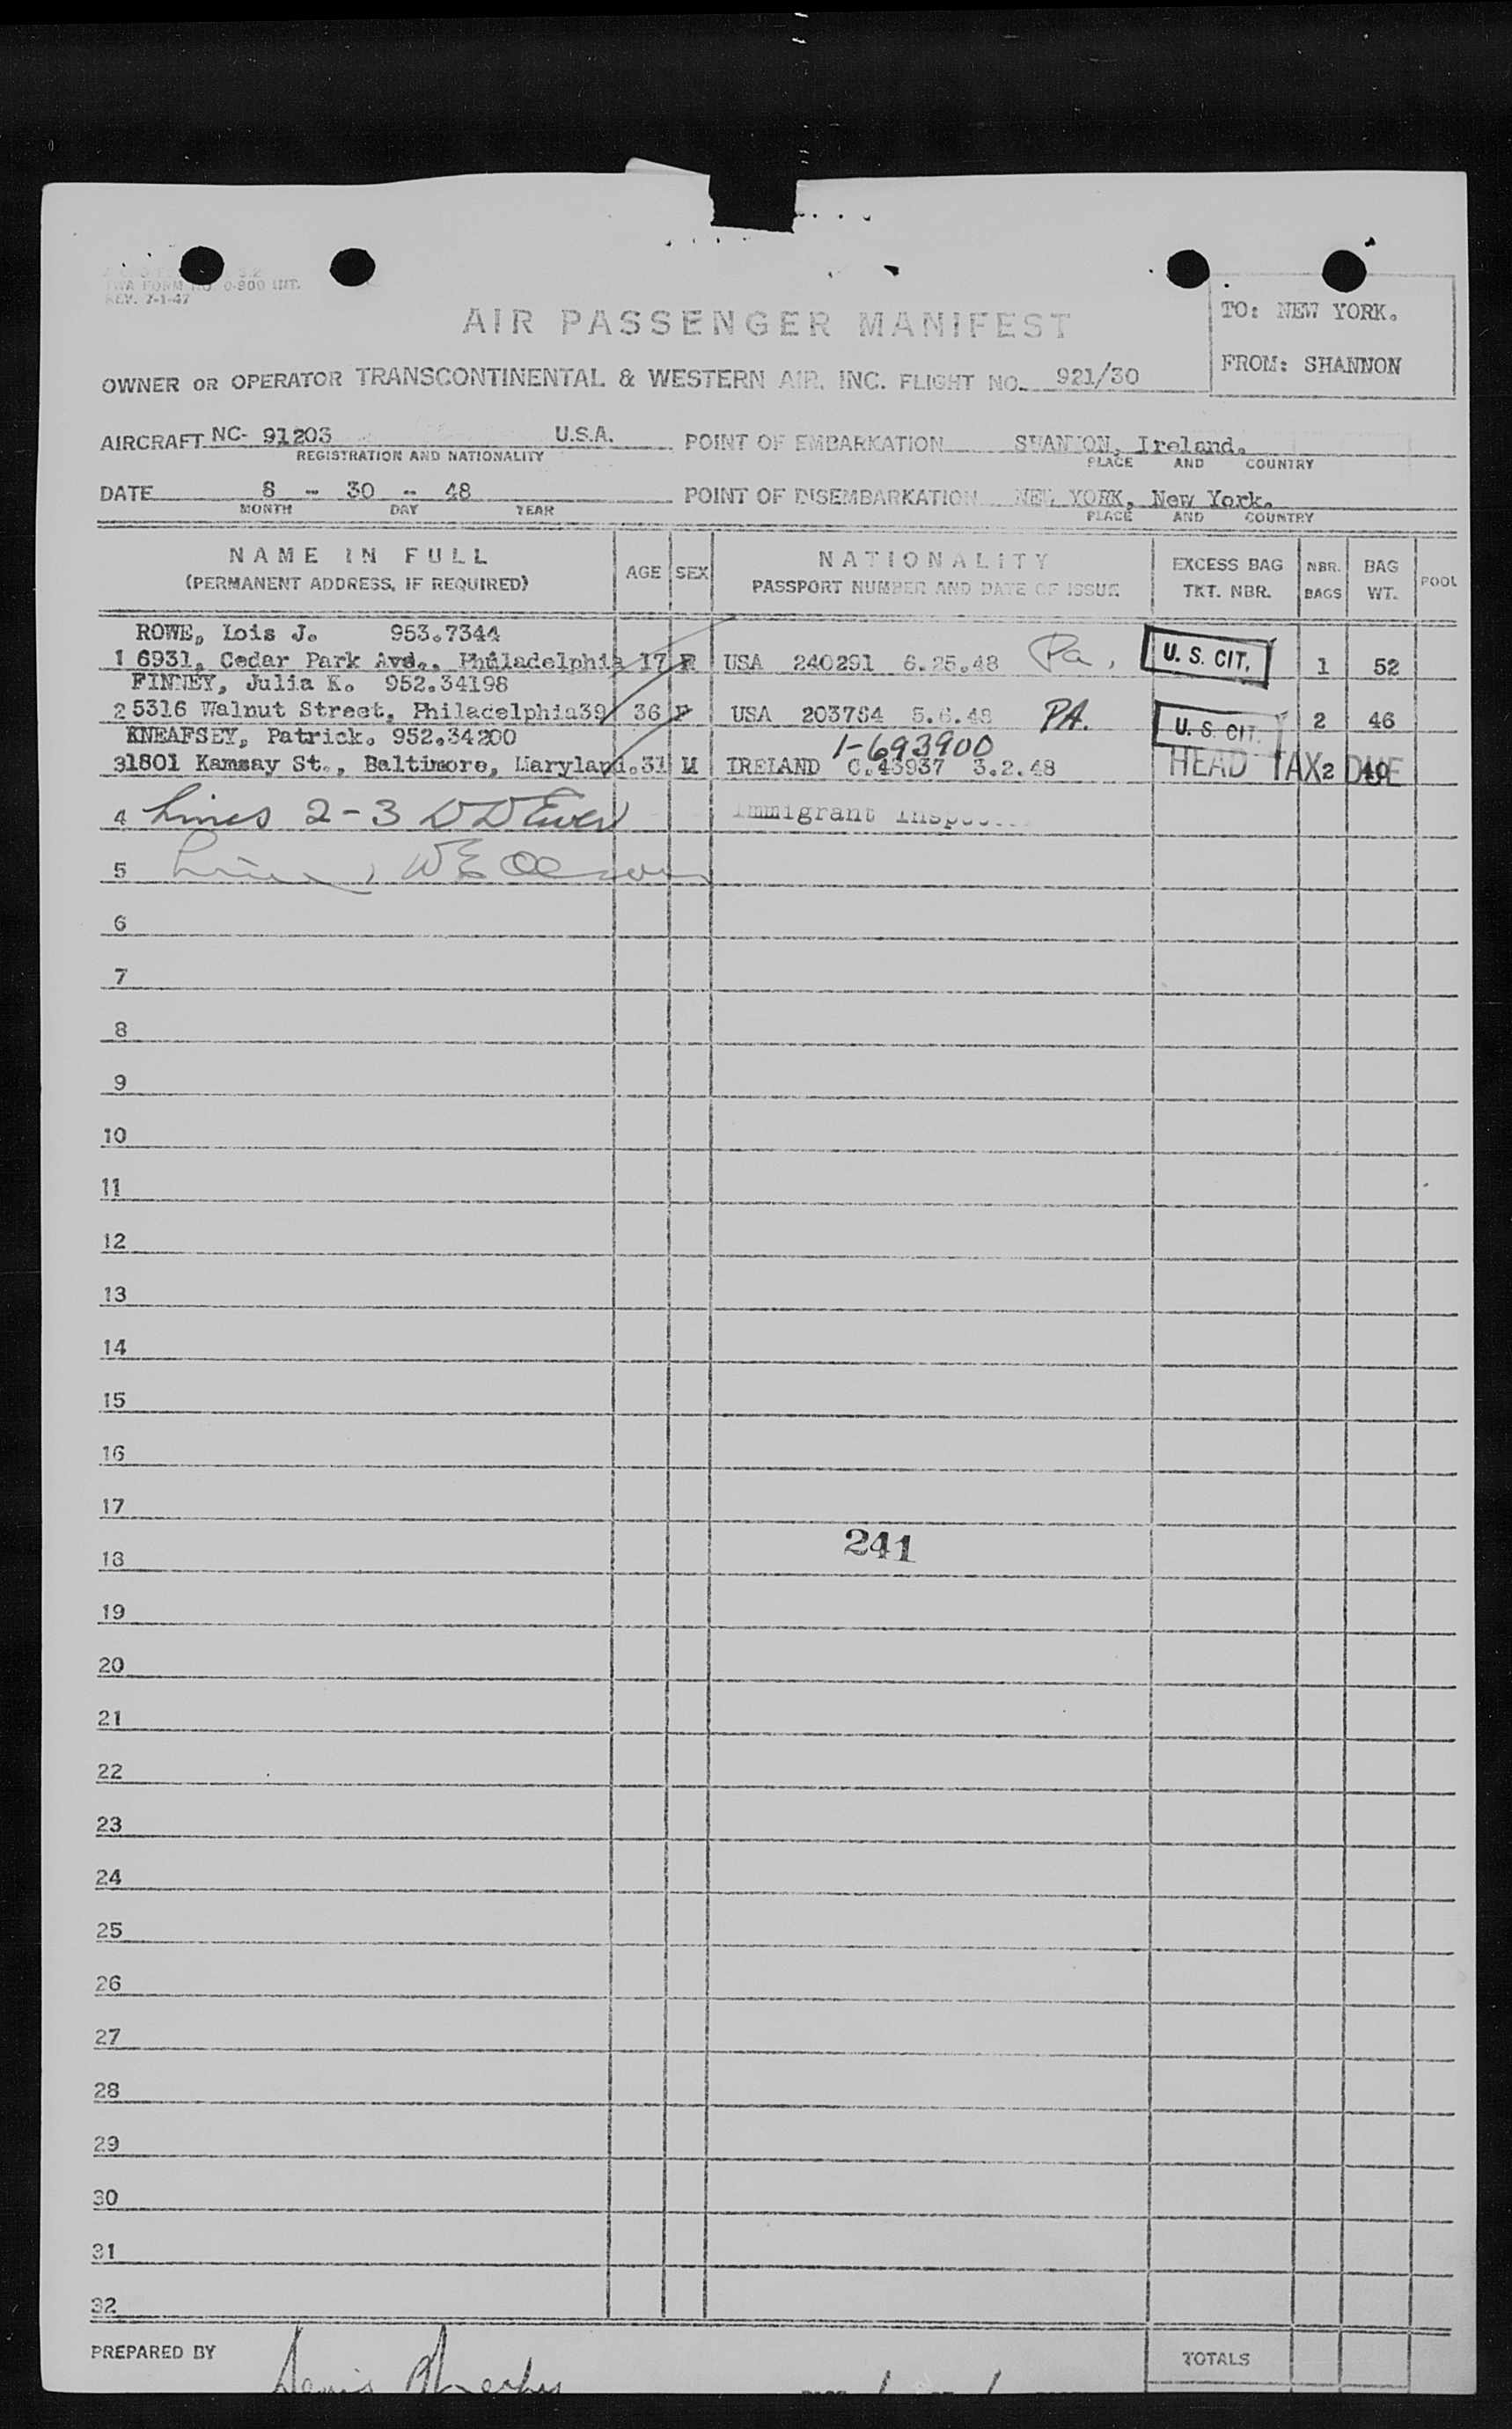 TWA FORM NO. 0-800 INT.
REV. 7-1-47
TO: NEW YORK.
FROM: SHANNON
AIR PASSENGER MANIFEST
OWNER OR OPERATOR TRANSCONTINENTAL & WESTERN AIR, INC. FLIGHT NO. 921/30
AIRCRAFT NC- 91203 U.S.A. POINT OF EMBARKATION SHANNON, Ireland.
REGISTRATION AND NATIONALITY PLACE AND COUNTRY
DATE 8 - 30 - 48 POINT OF DISEMBARKATION NEW YORK, New York.
MONTH DAY YEAR PLACE AND COUNTRY
NAME IN FULL (PERMANENT ADDRESS, IF REQUIRED) AGE SEX NATIONALITY PASSPORT NUMBER AND DATE OF ISSUE EXCESS BAG TKT. NBR. NBR. BAGS BAG WT. POOL
ROWE, Lois J. 953.7344
1 6931, Cedar Park Ave., Philadelphia 17 F USA 240291 6.25.48 Pa, U. S. CIT. 1 52
FINNEY, Julia K. 952.34198
2 5316 Walnut Street, Philadelphia39 36 F USA 203784 5.6.48 PA. U. S. CIT. 2 46
KNEAFSEY, Patrick. 952.34200 1-693900
3 1801 Ramsay St., Baltimore, Maryland. 31 M IRELAND C.43937 3.2.48 HEAD TAX DUE 2 40
4 Lines 2-3 Immigrant
5
6
7
8
9
10
11
12
13
14
15
16
17
241
18
19
20
21
22
23
24
25
26
27
28
29
30
31
32
PREPARED BY TOTALS